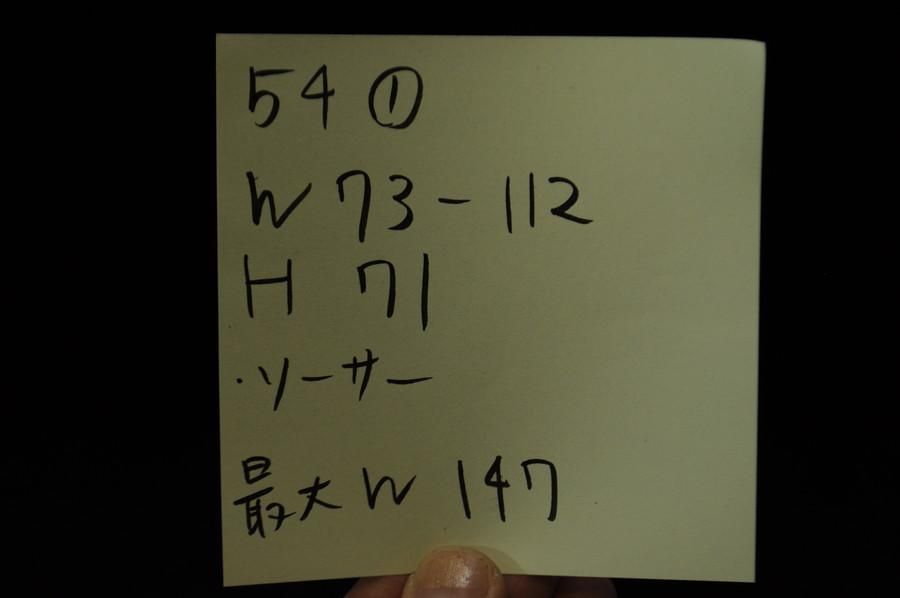 54 ①
W 73-112
H 71
・ソーサー
最大 W 147